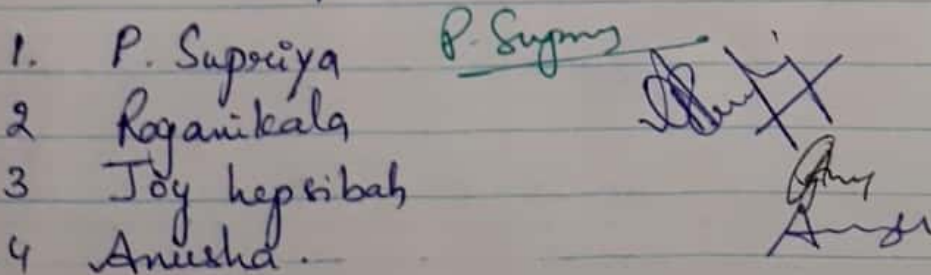 1. P. Supriya P. Supry
2 Roganikala
3 Joy hepsibah
4 Anusha.